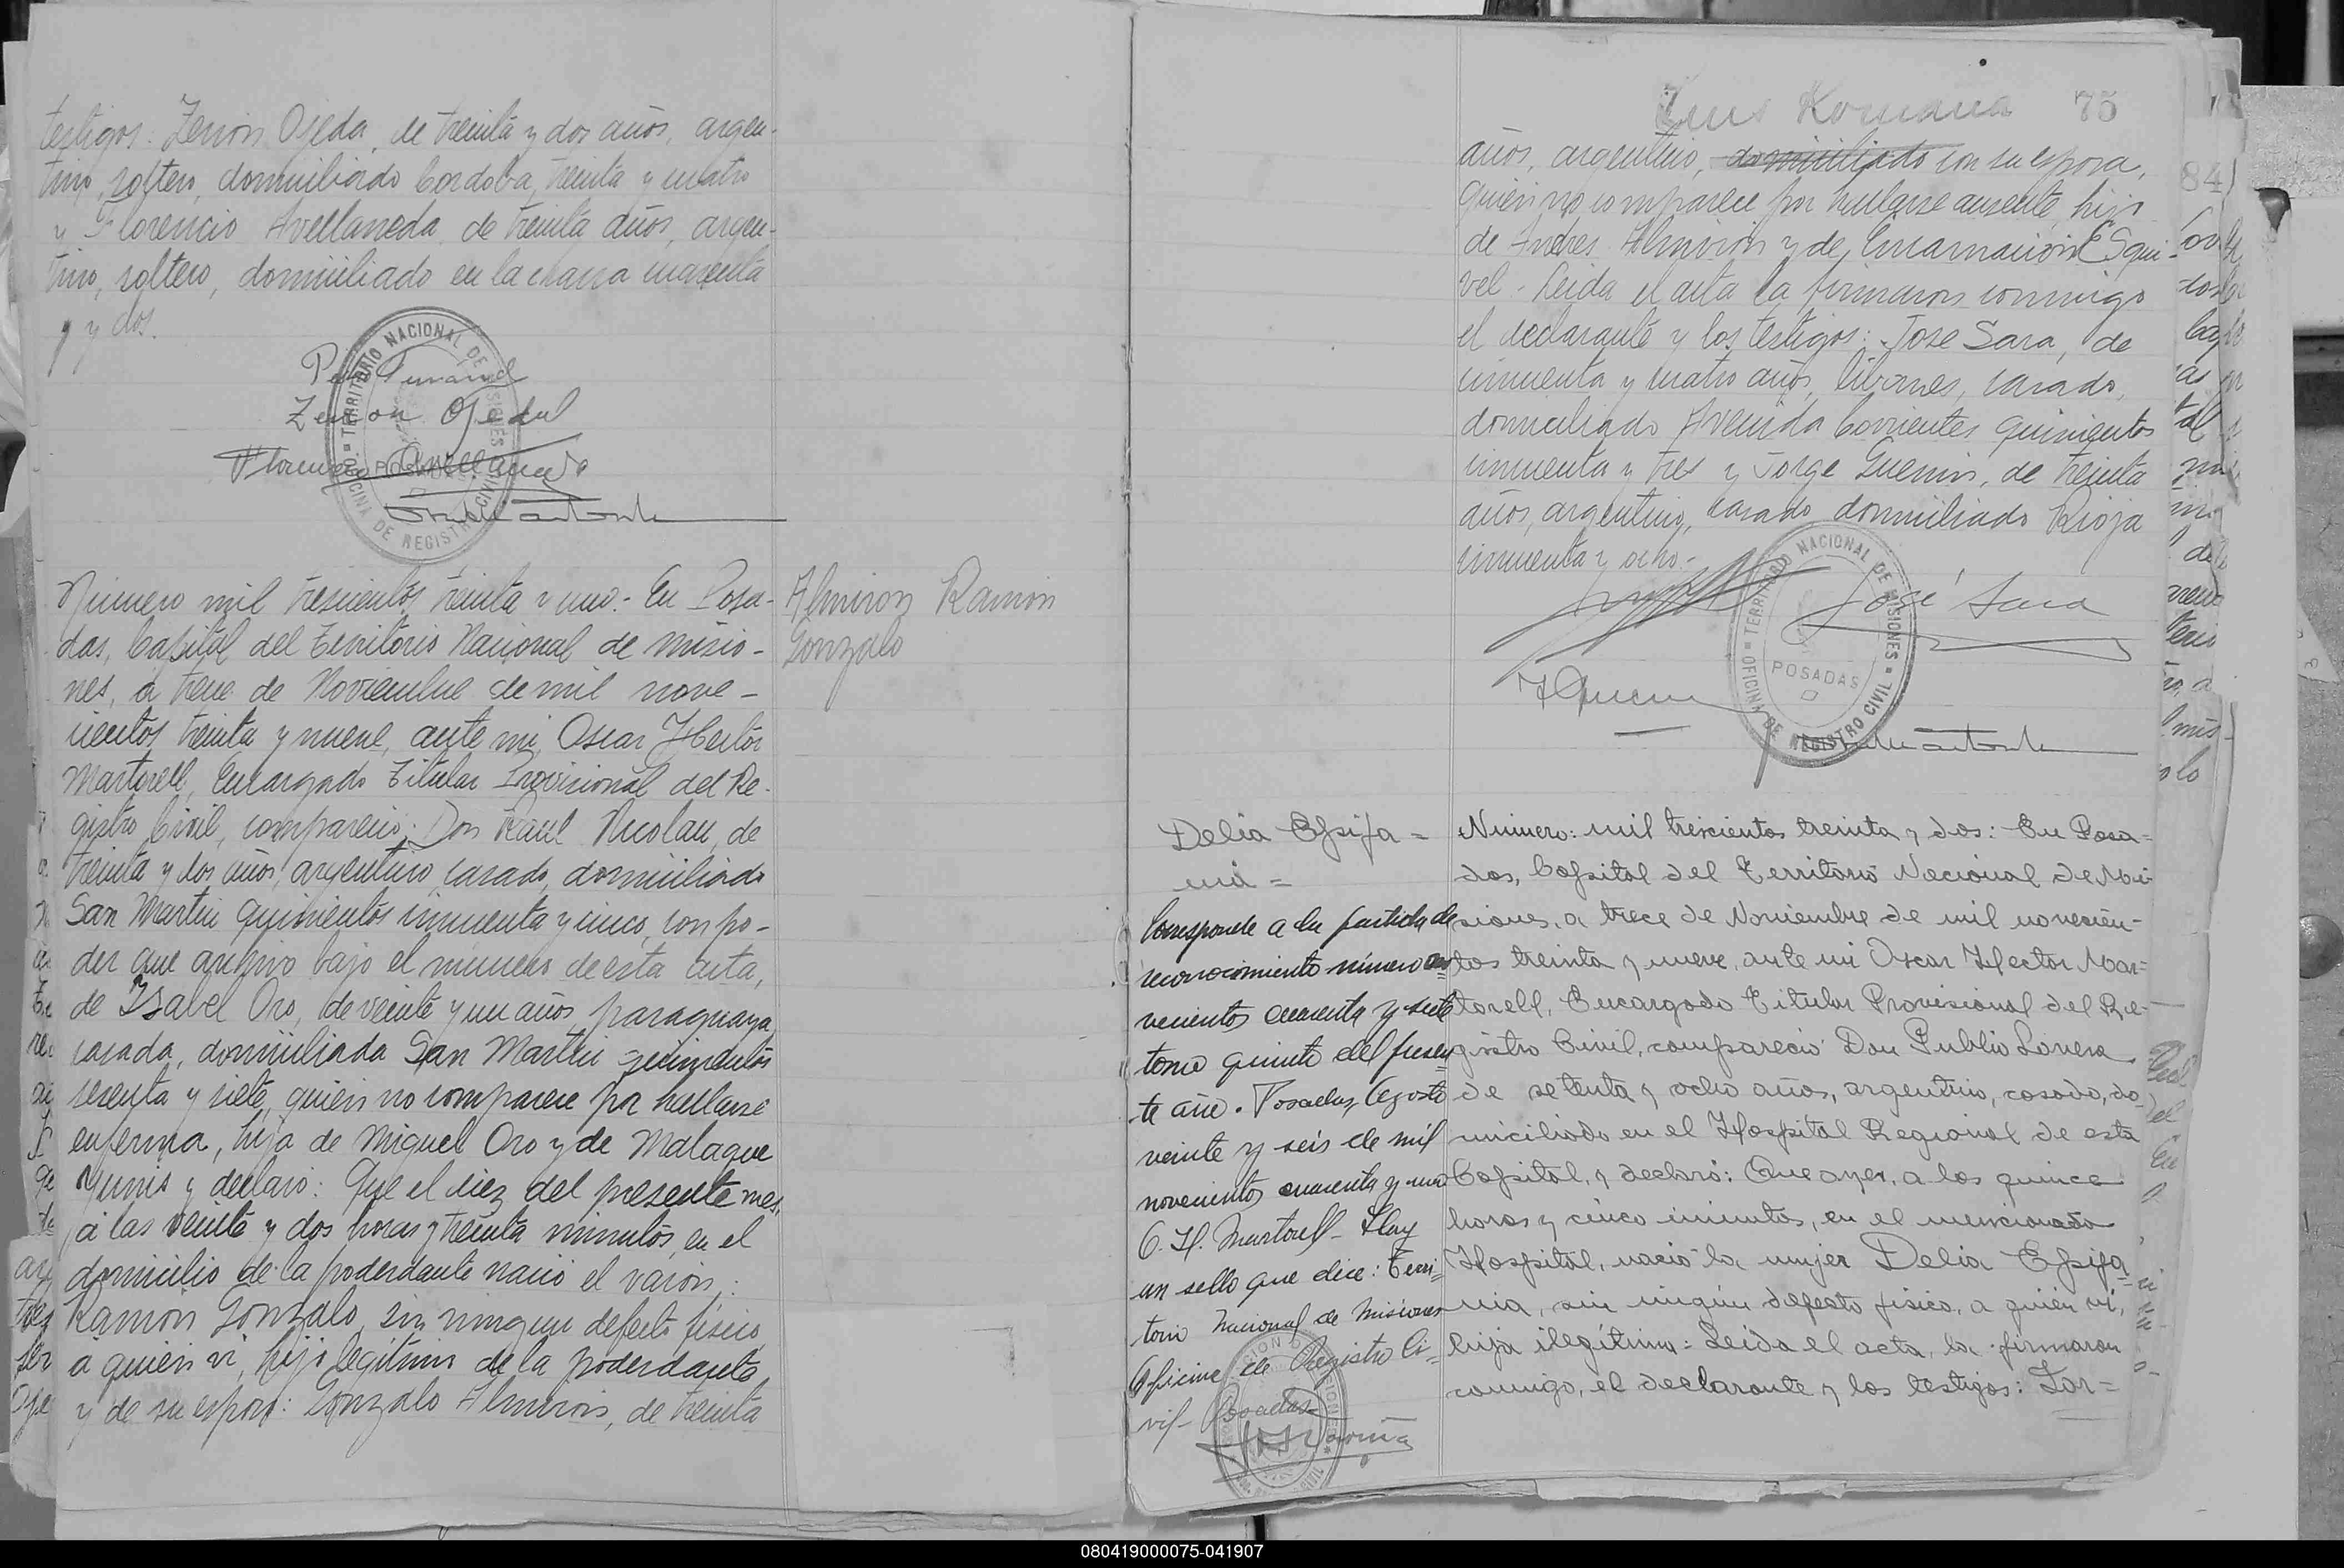 testigos: Zenon Ojeda, de treinta y dos años, argen-
tino, soltero, domiciliado Cordoba, treinta y cuatro
y Florencio Avellaneda, de treinta años, argen-
tino, soltero, domiciliado en la chacra cuarenta
y dos.
TERRITORIO NACIONAL DE MISIONES
OFICINA DE REGISTRO CIVIL
POSADAS
Zenon Ojeda
Florencio Avellaneda
Número mil trescientos treinta y uno.- En Posa-
das, Capital del Territorio Nacional de Misio-
nes, a trece de Noviembre de mil nove-
cientos treinta y nueve, ante mi, Oscar Hector
Martorell, Encargado Titular Provisional del Re-
gistro Civil, compareció: Don Raul Nicolau, de
treinta y dos años, argentino, casado, domiciliado
San Martin quinientos cincuenta y cinco, con po-
der que archivo bajo el numero de esta acta,
de Isabel Oro, de veinte y un años, paraguaya,
casada, domiciliada San Martin quinientos
sesenta y siete, quien no comparece por hallarse
enferma, hija de Miguel Oro y de Malaque
Yunis y declaró: Que el diez del presente mes,
a las veinte y dos horas y treinta minutos, en el
domicilio de la poderdante nació el varon:
Ramon Gonzalo, sin ningun defecto fisico,
a quien vi, hijo legitimo de la poderdante
y de su esposo: Gonzalo Almiron, de treinta
Almiron Ramon
Gonzalo
75
años, argentino, domiciliado con su esposa,
quien no comparece por hallarse ausente, hijo
de Andres Almiron y de Encarnacion Esqui-
vel.- Leida el acta la firmaron conmigo
el declarante y los testigos: Jose Sara, de
cincuenta y cuatro años, libanes, casado,
domiciliado Avenida Corrientes quinientos
cincuenta y tres y Jorge Guemin, de treinta
años, argentino, casado domiciliado Rioja
cincuenta y ocho.-
José Sara
TERRITORIO NACIONAL DE MISIONES
OFICINA DE REGISTRO CIVIL
POSADAS
Delia Epifa=
nia=
Corresponde a la partida de
reconocimiento número no=
vecientos cuarenta y siete
tomo quinto del presen=
te año. Posadas, Agosto
veinte y seis de mil
novecientos cuarenta y uno
O. H. Martorell - Hay
un sello que dice: Terri=
torio Nacional de Misiones
Oficina de Registro Ci=
vil- Posadas
Número: mil trescientos treinta y dos: En Posa=
das, Capital del Territorio Nacional de Mi=
siones, a trece de Noviembre de mil novecien=
tos treinta y nueve, ante mi Oscar Hector Mar=
torell, Encargado Titular Provisional del Re=
gistro Civil, compareció Don Publio Lovera
de setenta y ocho años, argentino, casado, do=
miciliado en el Hospital Regional de esta
Capital, y declaró: Que ayer, a las quince
horas y cinco minutos, en el mencionado
Hospital, nació la mujer Delia Epifa=
nia, sin ningún defecto fisico, a quién vi,
hija ilegítima: Leida el acta, la firmaron
conmigo, el declarante y los testigos: Lor=
080419000075-041907